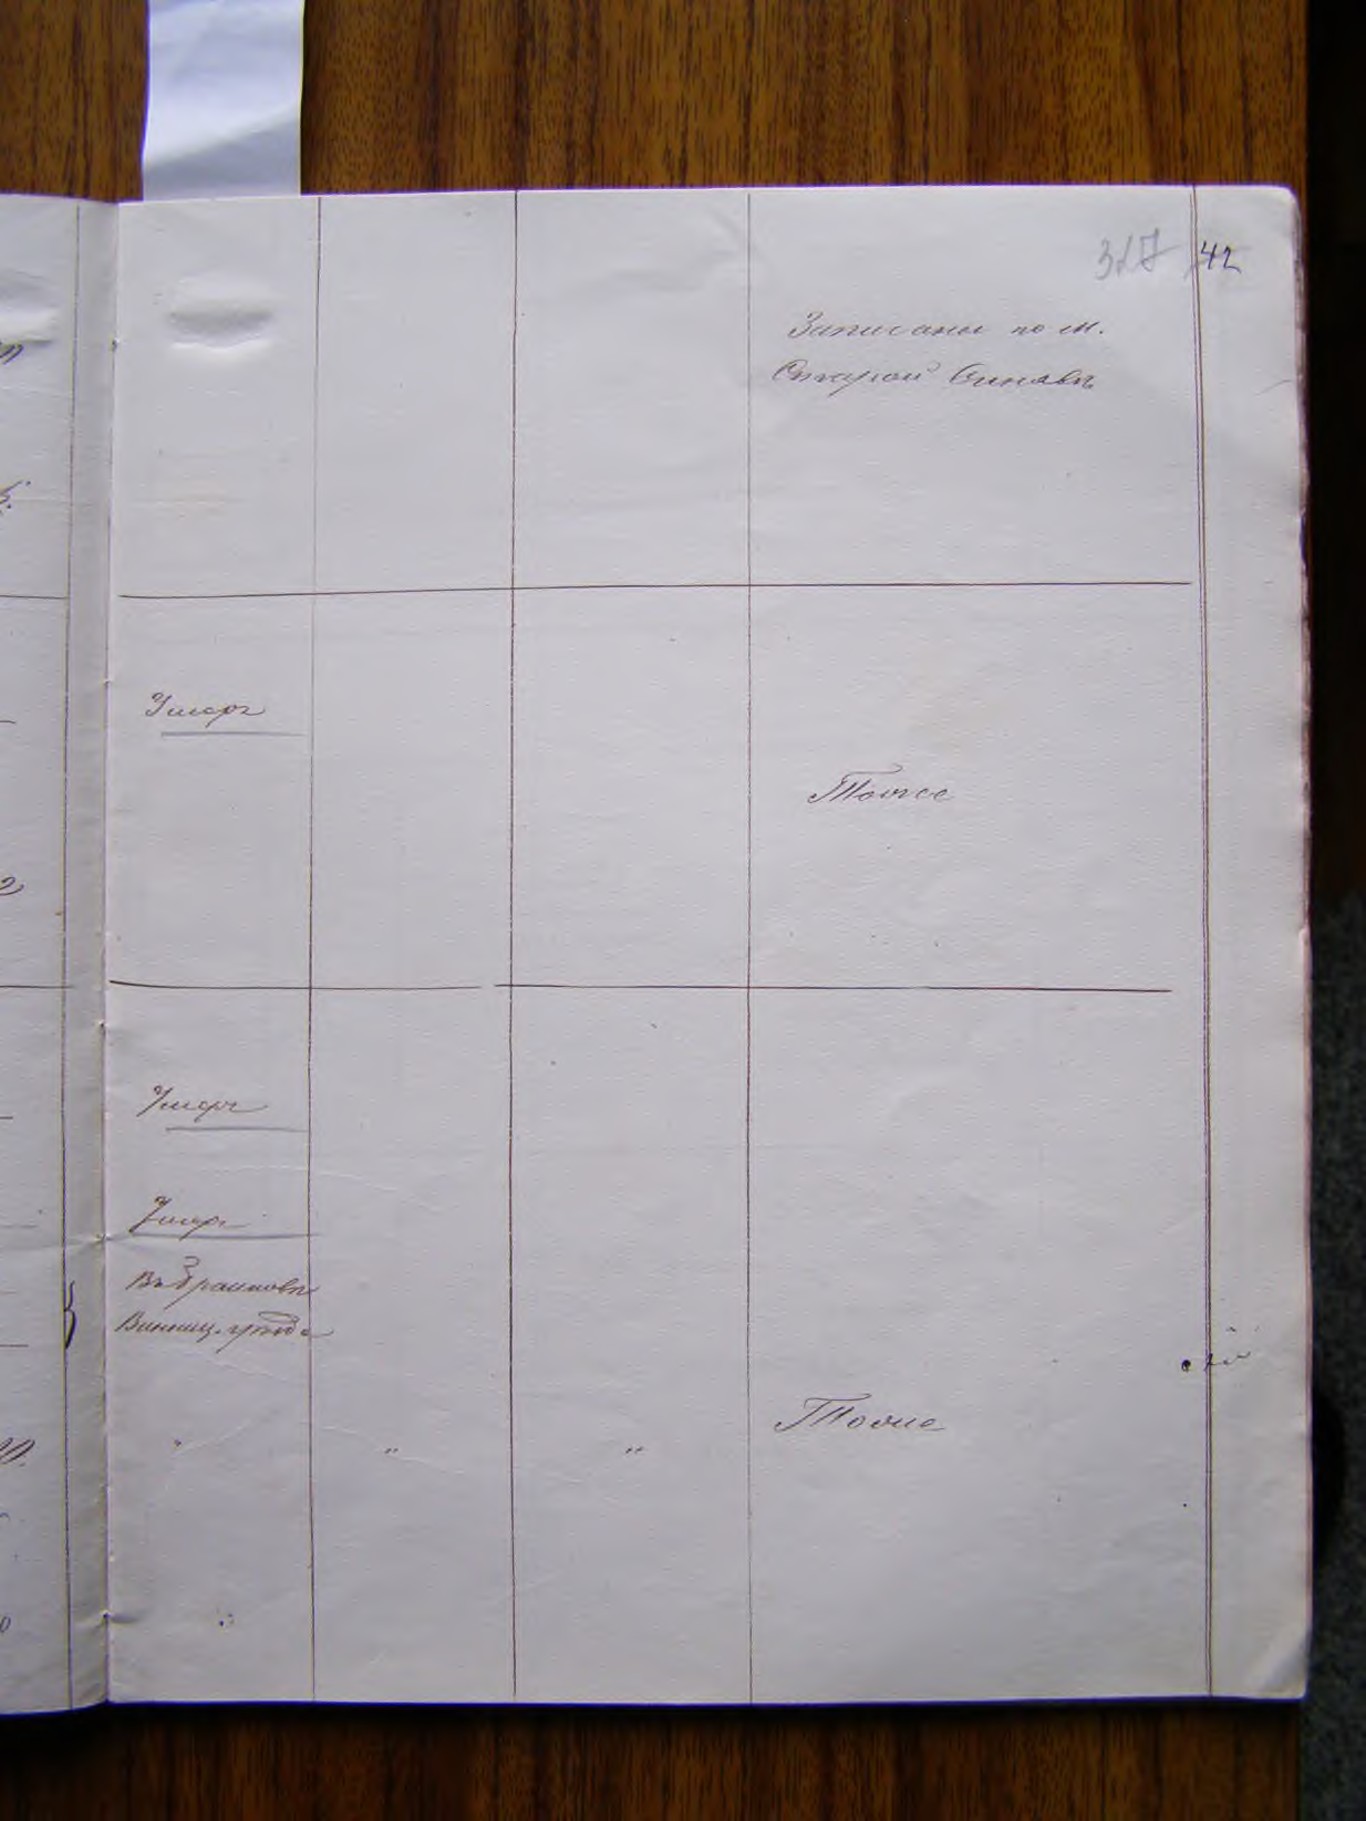 42
Записаны по м.
Старой Синявѣ
Умеръ
Тоже
Умеръ
Умеръ
Въ Браиловѣ
Винниц. уѣзда
" " "
Тоже